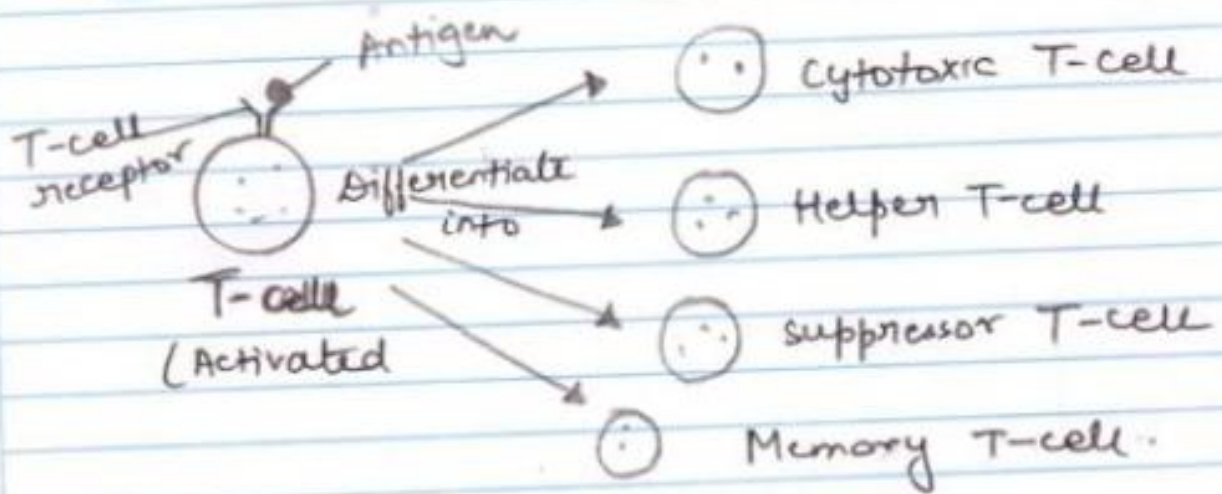 Antigen
T-cell
receptor
Differentiate
into
T-cell
(Activated
Cytotoxic T-cell
Helper T-cell
suppressor T-cell
Memory T-cell.